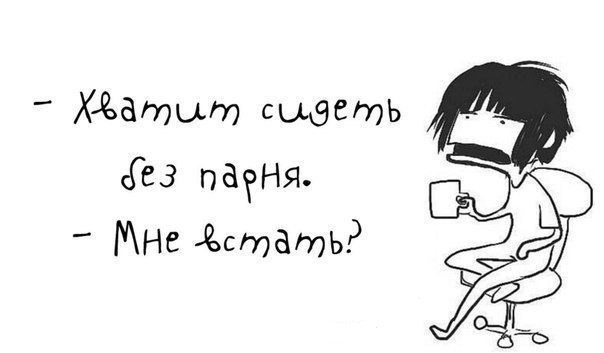 - Хватит сидеть
без парня.
- Мне встать?